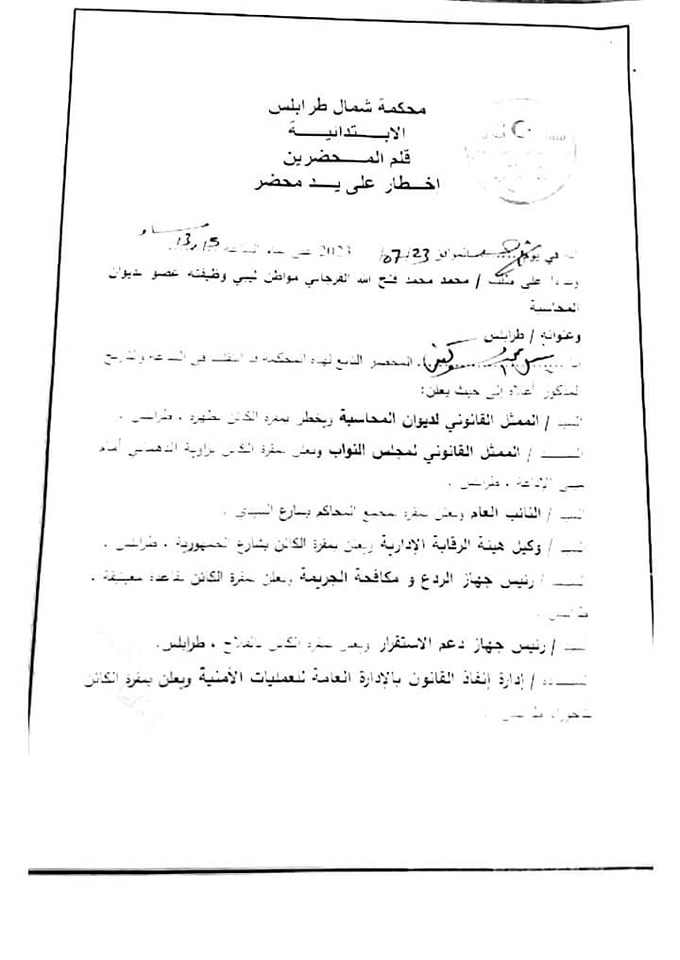 محكمة شمال طرابلس
الابتدائية
قلم المحضرين
إخطار على يد محضر
إنه في يوم الموافق 07/23 2023 على تمام الساعة 13,15
وبناءا على طلب / محمد محمد فتح الله الفرجاني مواطن ليبي وظيفته عضو بديوان
المحاسبة
وعنوانه / طرابلس
المحضر التابع لهذه المحكمة قد انتقلت في الساعة والتاريخ
المذكور أعلاه إلى حيث يعلن:
السيد / الممثل القانوني لديوان المحاسبة ويخطر بمقره الكائن بظهره ، طرابلس .
السيد / الممثل القانوني لمجلس النواب ويعلن بمقره الكائن بزاوية الدهماني أمام
مبنى الإذاعة ، طرابلس .
السيد / النائب العام ويعلن بمقره بمجمع المحاكم بشارع السيدي .
السيد / وكيل هيئة الرقابة الإدارية ويعلن بمقره الكائن بشارع الجمهورية ، طرابلس .
السيد / رئيس جهاز الردع و مكافحة الجريمة ويعلن بمقره الكائن بقاعدة معيتيقة ،
طرابلس .
السيد / رئيس جهاز دعم الاستقرار ويعلن بمقره الكائن بالفلاح ، طرابلس.
السادة / إدارة إنفاذ القانون بالإدارة العامة للعمليات الأمنية ويعلن بمقره الكائن
طرابلس .